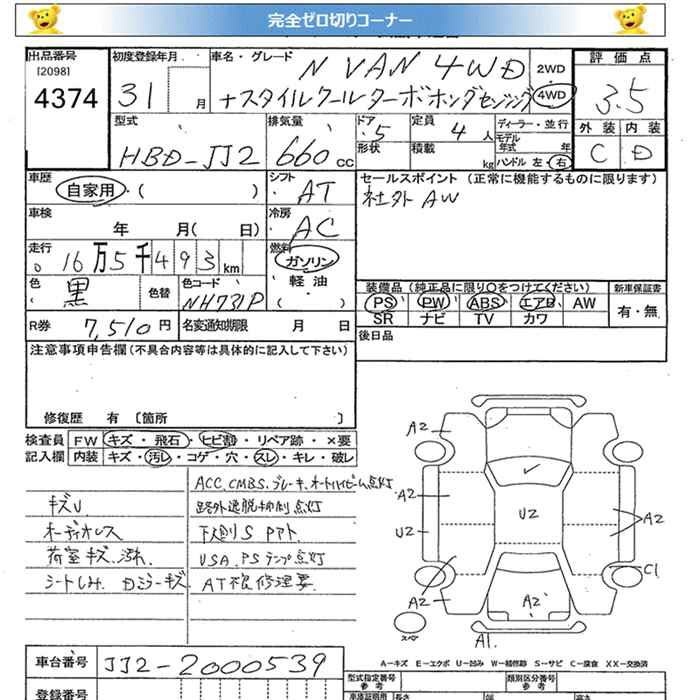 完全ゼロ切りコーナー
出品番号
[2098]
4374
初度登録年月
31 月
車名・グレード
N VAN 4WD
+スタイルクールターボホンダセンシング
2WD
4WD
評価点
3.5
外装 内装
C D
型式
HBD-JJ2
排気量
660 CC
ドア
5
形状
定員
4 人
積載
kg
ディーラー・並行
モデル
年式 年
ハンドル 左・右
車歴
自家用・( )
シフト
AT
セールスポイント (正常に機能するものに限ります)
社外 AW
車検
年 月( 日)
冷房
AC
走行
16万5千493km
燃料
ガソリン
軽油
( )
色
黒
色替
色コード
NH731P
装備品(純正品に限り○をつけてください)
PS PW ABS エアB AW
SR ナビ TV カワ
新車保証書
有・無
R券 7,510円
名変通知期限 月 日
後日品
注意事項申告欄(不具合内容等は具体的に記入して下さい)
修復歴 有 〔箇所 〕
検査員
記入欄
FW キズ・飛石・ヒビ割・リペア跡・×要
内装 キズ・汚レ・コゲ・穴・スレ・キレ・破レ
ACC.CMBS.ブレーキ.オートハイビーム点灯
キズU
路外逸脱抑制点灯
オーディオレス
下廻りS
荷室キズ.汚れ
VSA.PSランプ点灯
シートしみ.Dミラーキズ
AT不良修理要
A2
A2
U2
U2
A2
A2
C1
A2
A1.
スペア
A―キズ E―エクボ U―凹み W―補修跡 S―サビ C―腐食 XX―交換済
車台番号
JJ2-2000539
登録番号
型式指定番号
参考
類別区分番号
参考
車庫証明用
長さ
幅
高さ